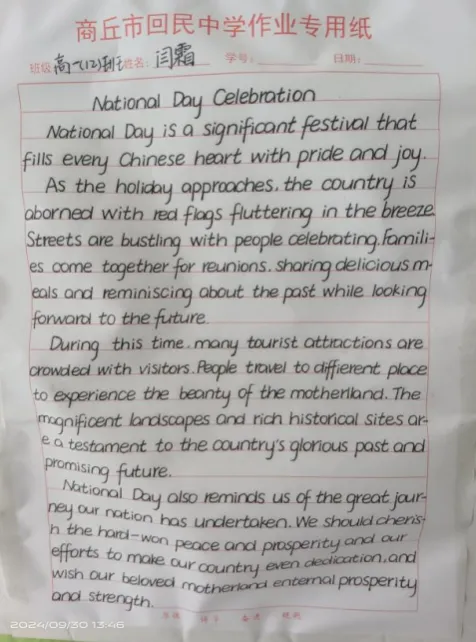 商丘市回民中学作业专用纸
班级:高一(12)班 姓名:闫霜 学号: 日期:
National Day Celebration
National Day is a significant festival that
fills every Chinese heart with pride and joy.
As the holiday approaches, the country is
aborned with red flags fluttering in the breeze.
Streets are bustling with people celebrating. Famili-
es come together for reunions, sharing delicious m-
eals and reminiscing about the past while looking
forward to the future.
During this time, many tourist attractions are
crowded with visitors. People travel to diffierent place
to experience the beanty of the motherland. The
magnificent landscapes and rich historical sites ar-
e a testament to the country's glorious past and
promising future.
National Day also reminds us of the great jour-
ney our nation has undertaken. We should cheris-
h the hard-won peace and prosperity and our
efforts to make our country even dedication, and
wish our beloved motherland enternal prosperity
and strength.
2024/09/30 13:46